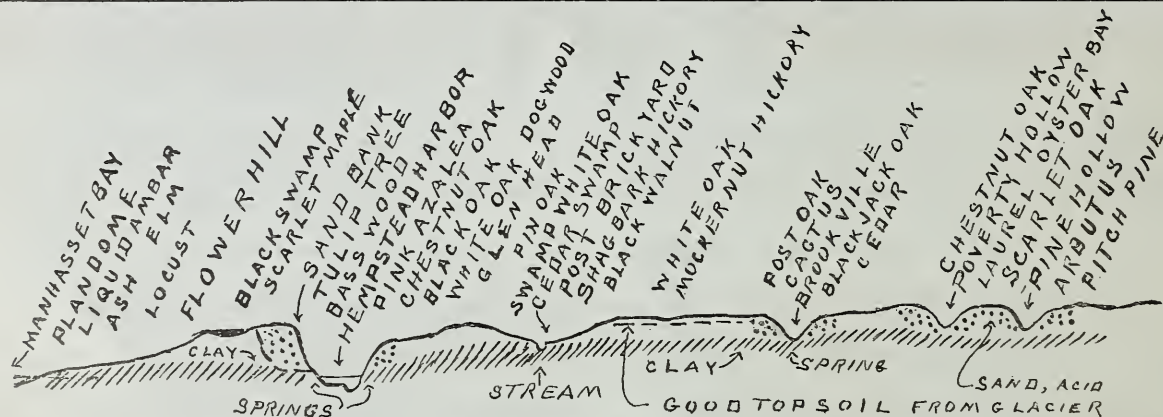 MANHASSET BAY
PLANDOME
LIQUIDAMBAR
ASH ELM
LOCUST
FLOWER HILL
BLACK SWAMP
SCARLET MAPLE
SAND BANK
TULIP TREE
BASS WOOD
HEMPSTEAD HARBOR
PINK AZALEA
CHESTNUT OAK
BLACK OAK
WHITE OAK DOGWOOD
GLEN HEAD
PIN OAK
SWAMP WHITE OAK
CEDAR SWAMP
POST BRICK YARD
SHAGBARK HICKORY
BLACK WALNUT
WHITE OAK
MUCKERNUT HICKORY
POST OAK
CACTUS
BROOKVILLE
BLACKJACK OAK
CEDAR
CHESTNUT OAK
POVERTY HOLLOW
LAUREL OYSTER BAY
SCARLET OAK
PINE HOLLOW
ARBUTUS
PITCH PINE
CLAY
SPRINGS
STREAM
CLAY
SPRING
GOOD TOPSOIL FROM GLACIER
SAND, ACID